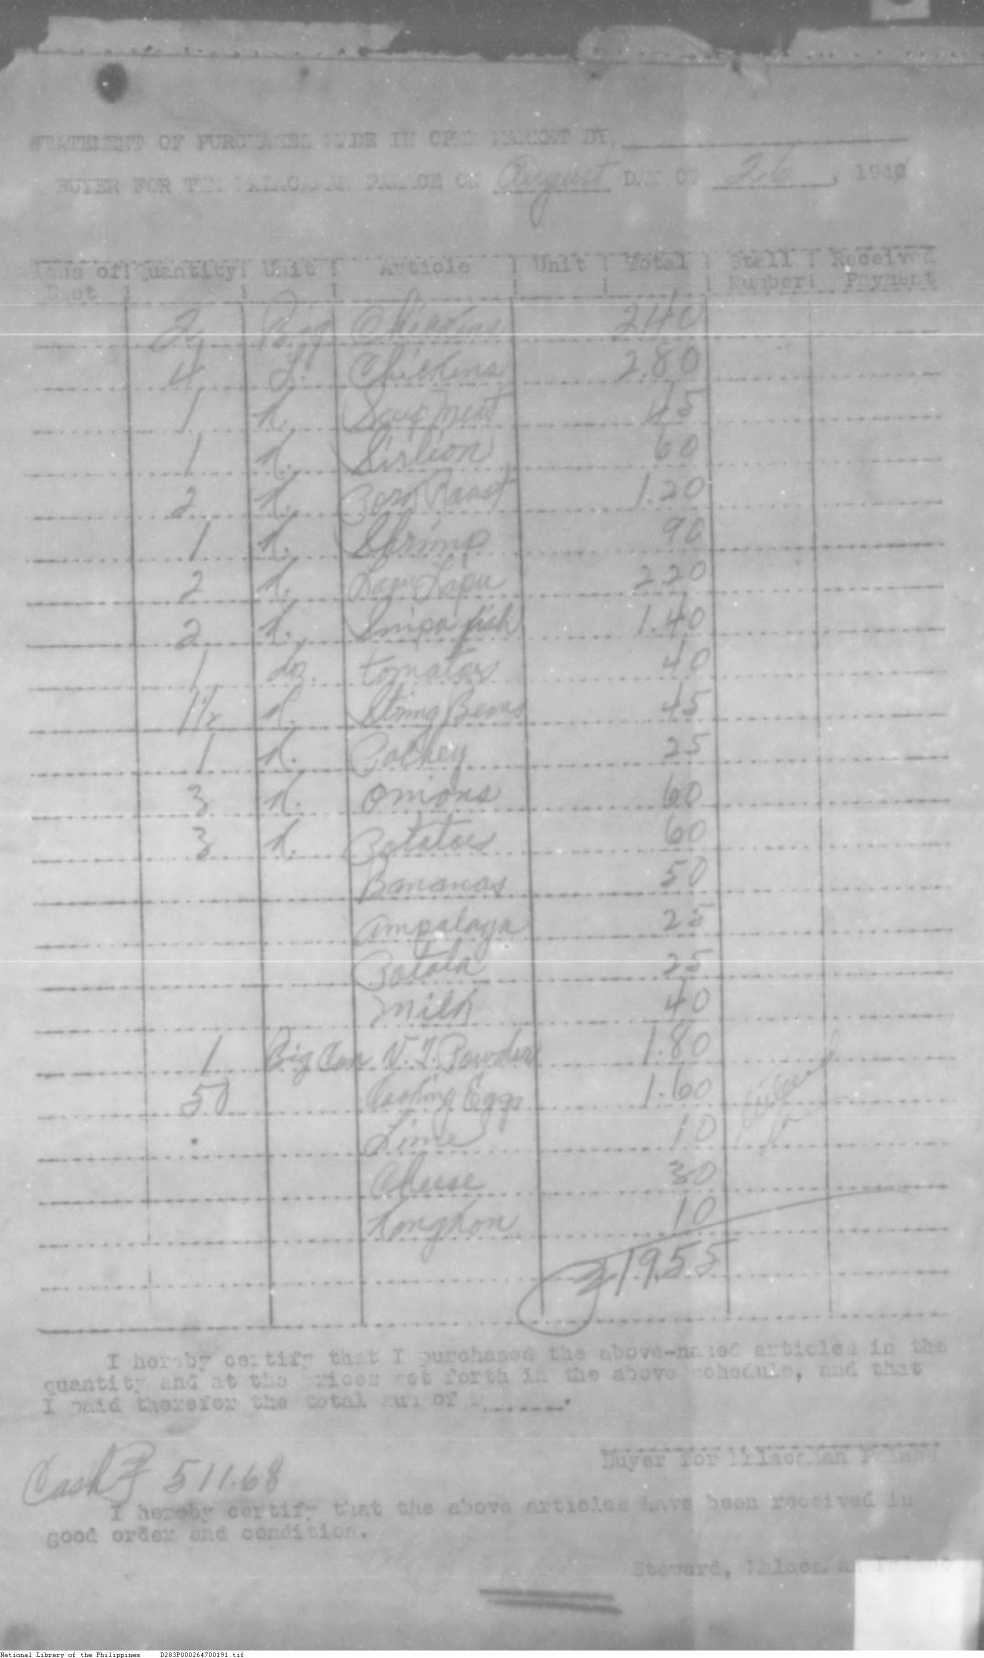 STATEMENT OF PURCHASES MADE IN OPEN MARKET BY
BUYER FOR THE MALACAÑAN PALACE ON August DAY OF 26, 194
Quantity Unit Article Unit Total Stall Received
Number Payment
2 Big Chickens 2.40
4 L. Chickens 2.80
1 k. Soup Meat 45
1 k. Sirlion 60
2 k. Pork Roast 1.20
1 k. Shrimp 90
2 k. Lapu Lapu 2.20
2 k. fish 1.40
1 dz. tomatoes 40
1½ k. String Beans 45
1 k. 25
3 k. Onions 60
3 k. Potatoes 60
Bananas 50
Ampalaya 25
Patola 25
Milk 40
1 Big Can Powder 1.80
50 Cooking Eggs 1.60
Lime 10
30
Kongkon 10
₱19.55
I hereby certify that I purchased the above-named articles in the
quantity and at the prices set forth in the above schedule, and that
I paid therefor the total sum of
Buyer for Malacañan Palace
Cash ₱ 511.68
I hereby certify that the above articles have been received in
good order and condition.
Steward,
National Library of the Philippines D283P000264700191.tif